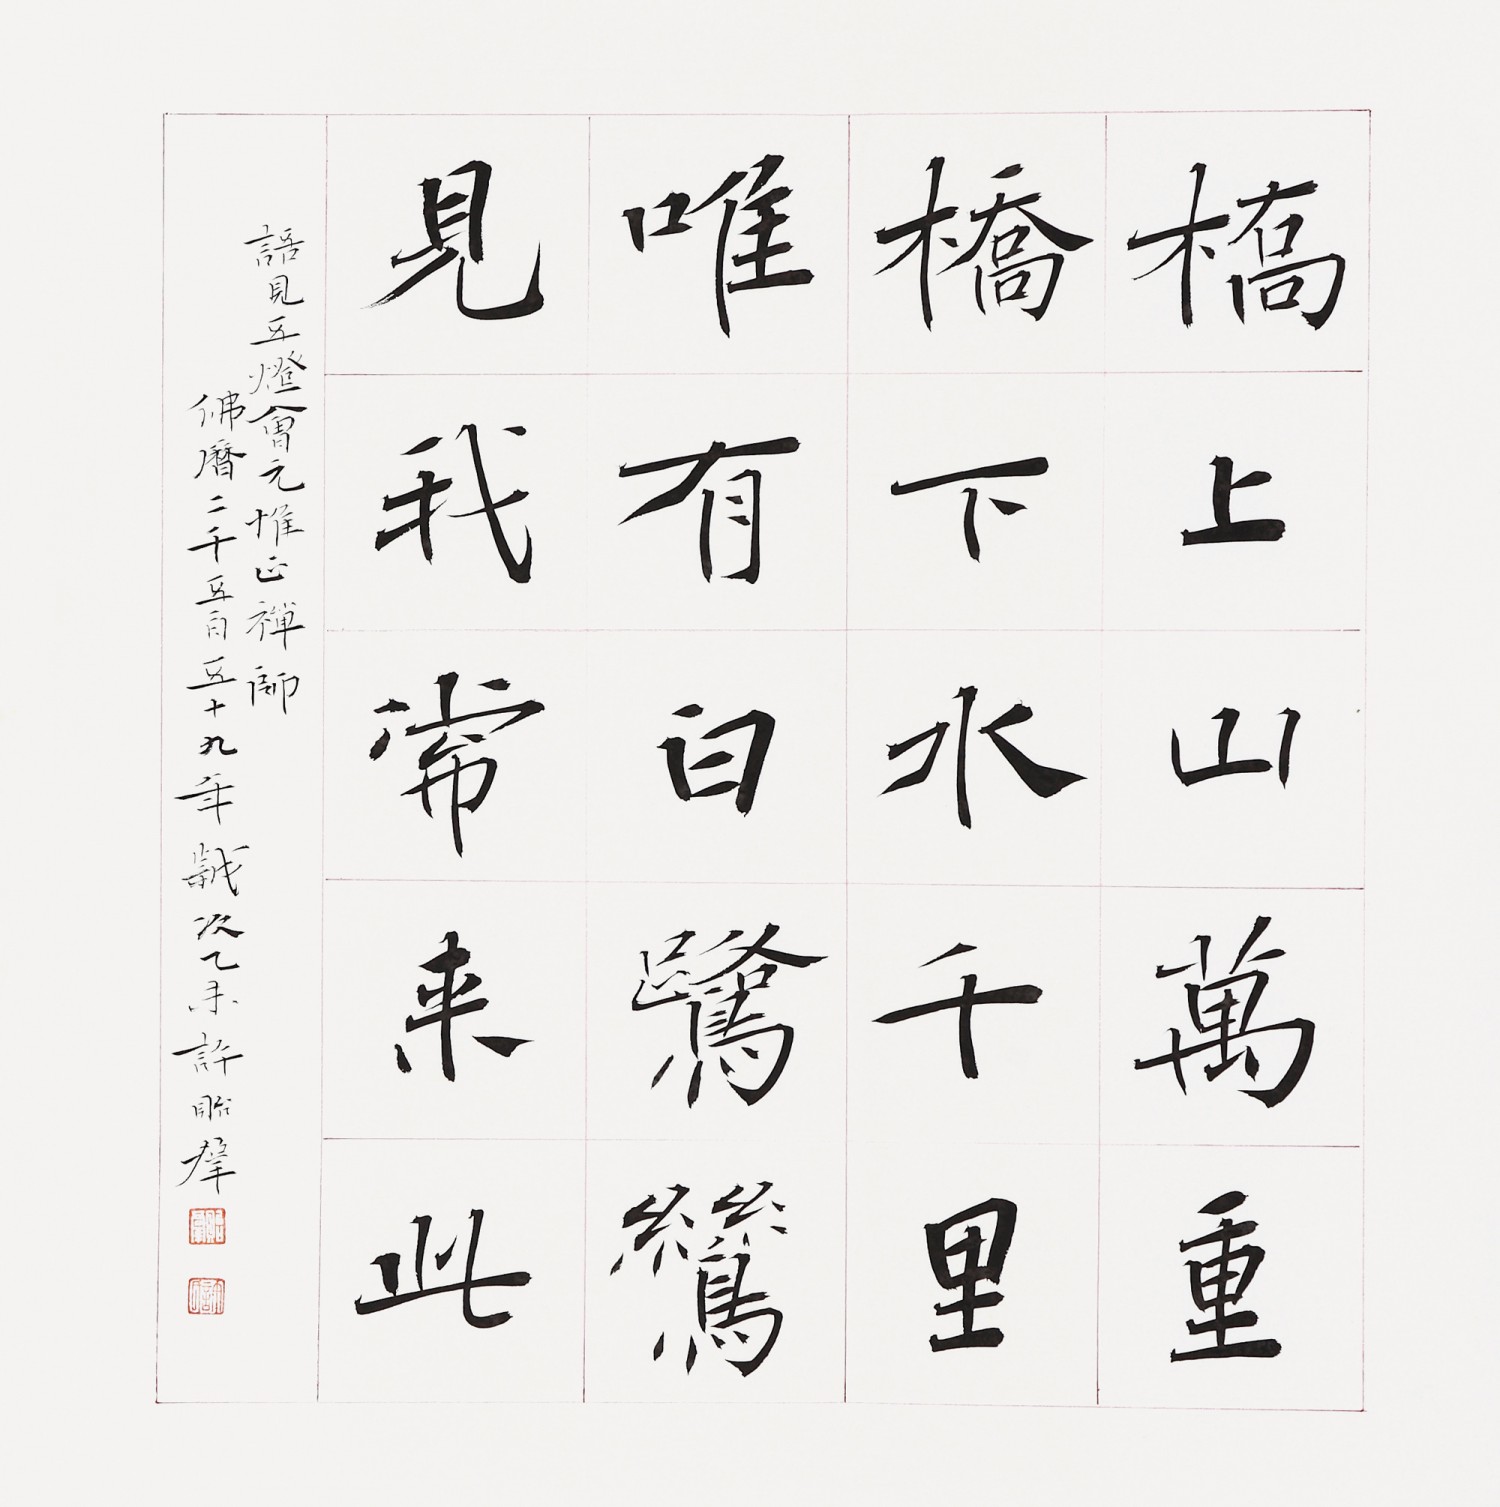 橋上山萬重
橋下水千里
唯有白鷺鷥
見我常来此
語見五燈會元惟正禪師
佛曆二千五百五十九年歲次乙未許羣